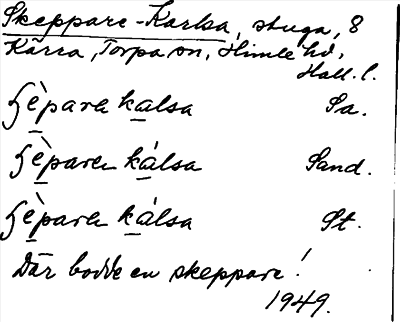 Skeppare-Karlsa, stuga, 8
Kärra, Torpa sn, Himle hd,
Hall. l.
ʃèparɐ kalsa Sa.
ʃèparɐn kálsa Sand.
ʃèparɐ kálsa St.
Där bodde en skeppare!
1949.